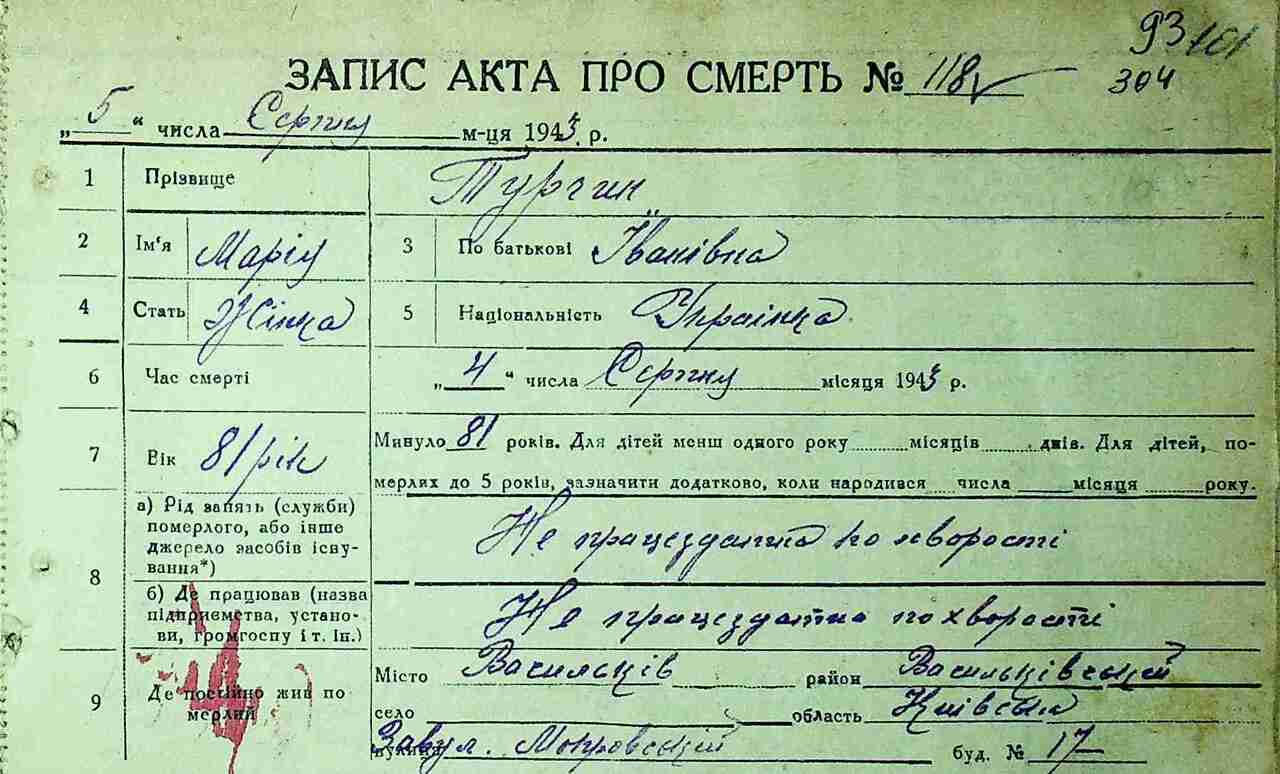 93 101
304
ЗАПИС АКТА ПРО СМЕРТЬ № 118
„5“ числа Серпня м-ця 1943 р.
1 Прізвище Турчин
2 Ім'я Марія 3 По батькові Іванівна
4 Стать Жінка 5 Національність Українка
6 Час смерті „4“ числа Серпня місяця 1943 р.
7 Вік 81 рік Минуло 81 років. Для дітей менш одного року місяців днів. Для дітей, по-
мерлих до 5 років, зазначити додатково, коли народився числа місяця року.
8 а) Рід занять (служби) померлого, або інше джерело засобів існу-вання*) Не працездатна по хворості
б) Де працював (назва підприємства, устано-ви, громгоспу і т. ін.) Не працездатна по хворості
9 Де постійно жив по мерлий Місто Васильків район Васильківський
село область Київська
Завул. Покровський буд. № 17